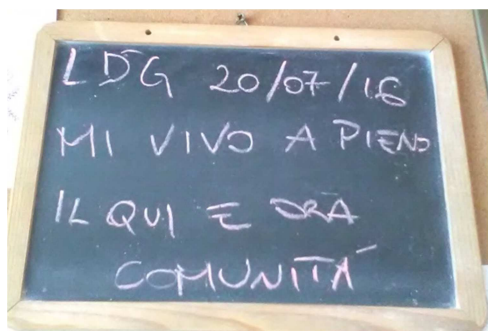 LDG 20/07/16
MI VIVO A PIENO
IL QUI E ORA
COMUNITÁ